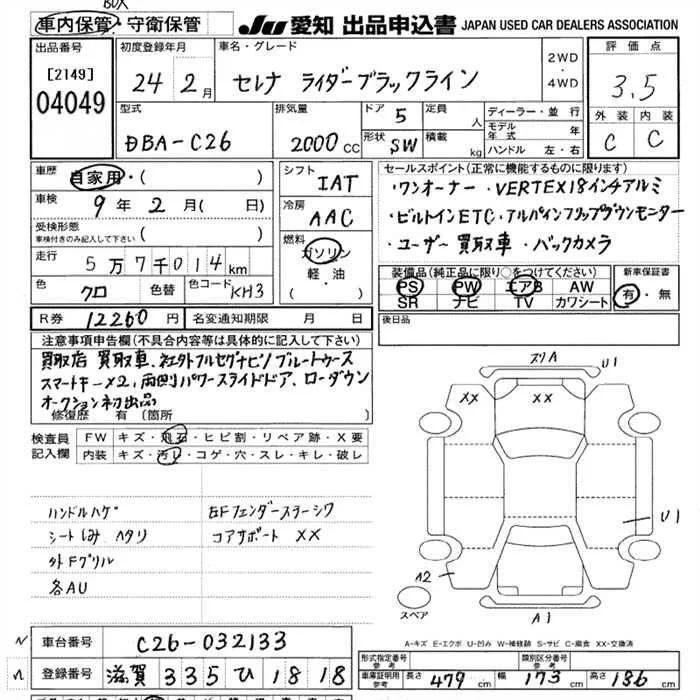 BOX
車内保管・守衛保管
JU 愛知 出品申込書 JAPAN USED CAR DEALERS ASSOCIATION
出品番号 初度登録年月 車名・グレード 2WD・4WD 評価点
[2149]
04049
24年2月 セレナ ライダーブラックライン 3.5
型式 排気量 ドア 5 定員 人 ディーラー・並行 外装 内装
DBA-C26 2000CC 形状 SW 積載 kg モデル年式 年 C C
ハンドル 左・右
車歴 自家用・( ) シフト IAT セールスポイント(正常に機能するものに限ります)
車検 9年2月( 日) 冷房 AAC ・ワンオーナー ・VERTEX18インチアルミ
・ビルトインETC ・アルパインフリップダウンモニター
受検形態 車検付きのみ記入して下さい ( ) 燃料 ガソリン・軽油・( ) ・ユーザー買取車 ・バックカメラ
走行 5万7千014km 装備品(純正品に限り○をつけてください) 新車保証書
色 クロ 色替 色コード KH3 PS PW エアB AW 有・無
SR ナビ TV カワシート
R券 12260円 名変通知期限 月 日 後日品
注意事項申告欄(不具合内容等は具体的に記入して下さい)
買取店 買取車、社外フルセグナビソ ブルートゥース
スマートキー×2、両側パワースライドドア、ローダウン
オークション初出品
修復歴 有 〔箇所
検査員記入欄 FW キズ・飛石・ヒビ割・リペア跡・X要
内装 キズ・汚レ・コゲ・穴・スレ・キレ・破レ
ハンドルハゲ 右Fフェンダーステーシワ
シートしみ ヘタリ コアサポート XX
外Fグリル
各AU
スリA U1
XX XX
U1
A2
スペア A1
A-キズ E-エクボ U-凹み W-補修跡 S-サビ C-腐食 XX-交換済
車台番号 C26-032133
登録番号 滋賀 335 ひ 1818
形式指定番号 参考 類別区分番号 参考
車庫証明用 参考 長さ 479cm 幅 173cm 高さ 186cm